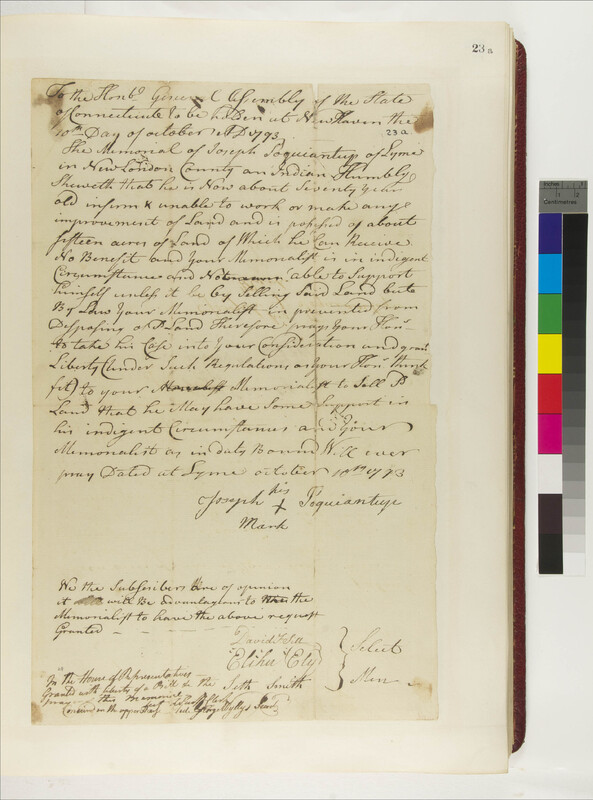 23a
To the Honbl. General Assembly of the State
of Connecticute to be holden at New Haven the
10th Day of october AD 1793
23a
The Memorial of Joseph Poquiantup of Lyme
in New London County an Indian Humbly
Sheweth that he is Now about Seventy Years
old infirm & unable to work or make any
improvement of Land and is possesed of about
fifteen acres of Land of Which he Can Receive
No Benefit and Your Memorialist is in indigent
Circumstance and Not able to Support
himself unless it be by Selling Said Land but
By Law Your Memorialist in prevented from
Desposing of Sd Land therefore prays Your Honrs
to take his Case into Your Consideration and grant
Liberty (Under Such Regulations as your Honrs think
fit) to your Memorialist to Sell Sd
Land that he May have Some Support in
his indigent Circumstances and Your
Memorialist as in duty Bound Will ever
pray Dated at Lyme october 10th 1793
Joseph his X Poquiantup
Mark
We the Subscribers are of opinion
it will Be advantagious to the
Memorialist to have the above request
Granted
Elihu Ely
Seth Smith
Select
Men
In the House of Representatives
Granted with liberty of a Bill &c the
prayer of this Memorial
Concurred in the upper House
Test George Wyllys Secrety
Inches 1 2
Centimetres